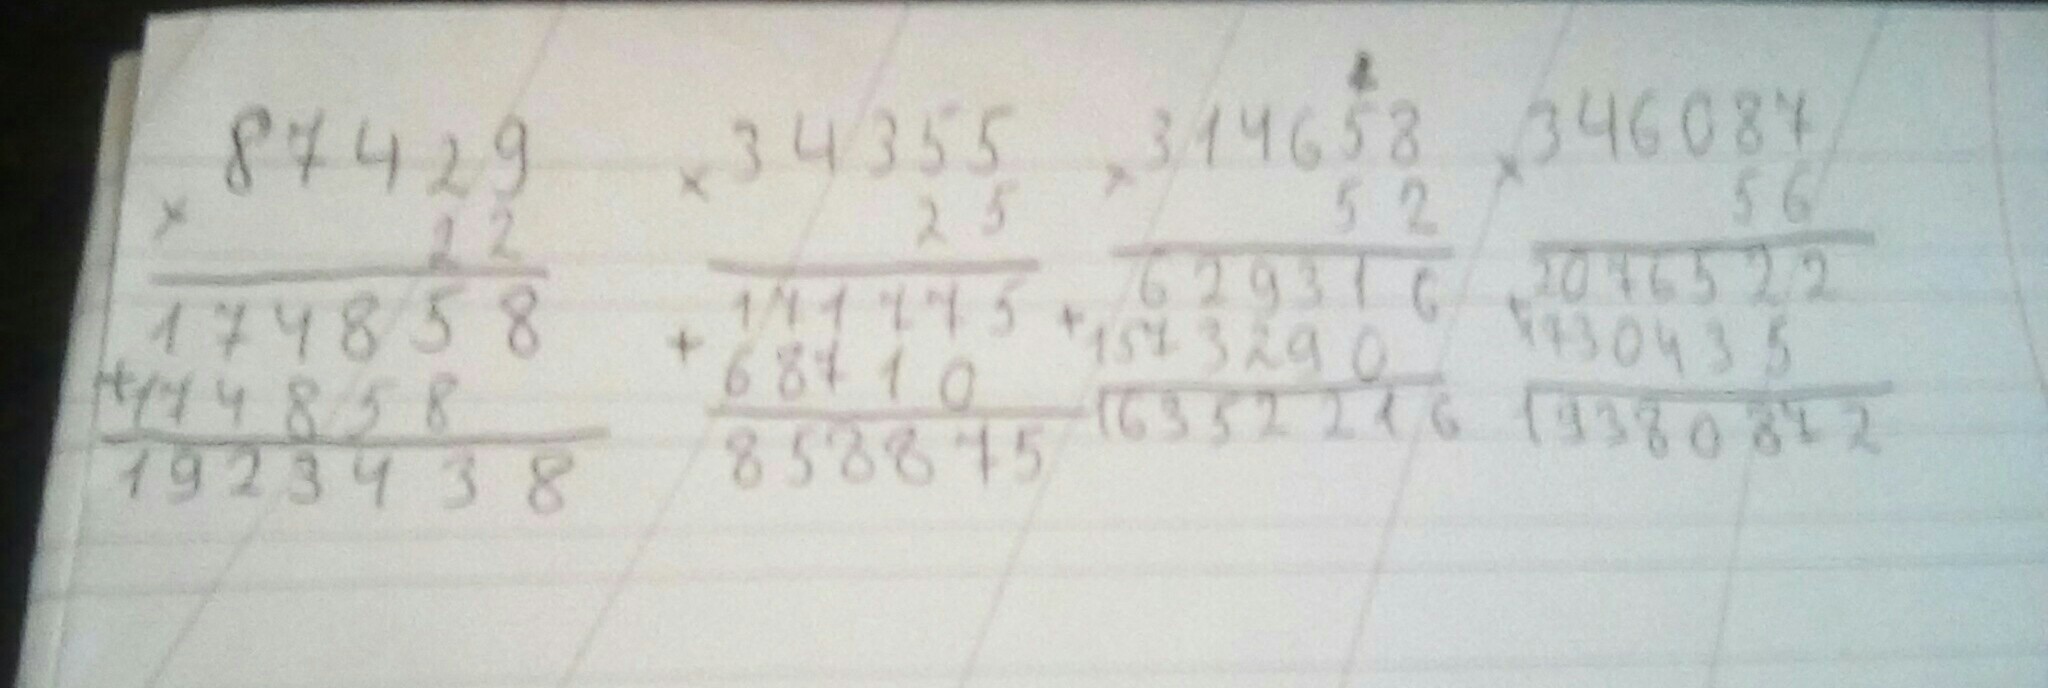 87429
× 22
174858
+174858
1923438
× 34355
25
171775
+ 68710
858875
× 314658
52
629316
+ 1573290
16352216
× 346087
56
2076522
+ 1730435
19380872